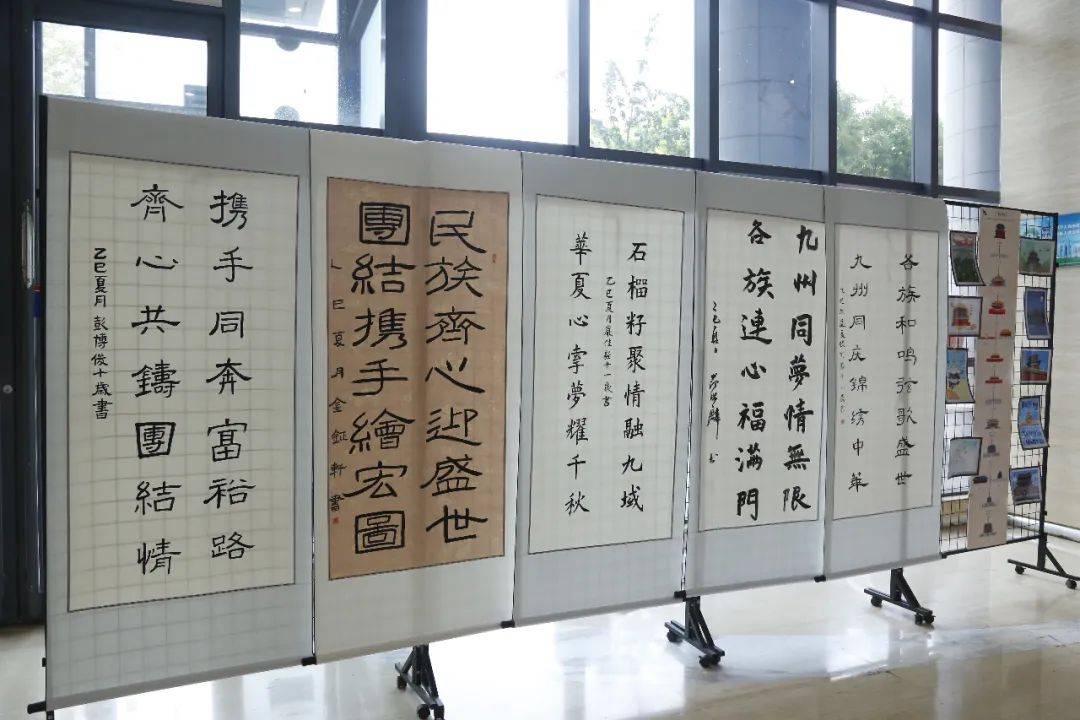 携手同奔富裕路
齊心共鑄團結情
乙巳夏月 彭博俊十歲書
民族齊心迎盛世
團結携手繪宏圖
乙巳夏月金鉦軒書
石榴籽聚情融九域
華夏心掌夢耀千秋
乙巳夏月
十一歲書
九州同夢情無限
各族連心福滿門
乙巳夏月
书
各族和鸣弦歌盛世
九州同庆錦绣中華